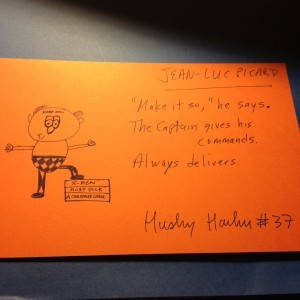 JEAN-LUC PICARD
"Make it so," he says.
The Captain gives his
commands.
Always delivers.
X-MEN
MOBY DICK
A CHRISTMAS CAROL
Haiku #37